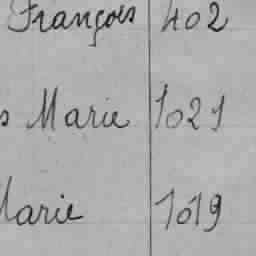 François 402
s Marie 1021
Marie 1019